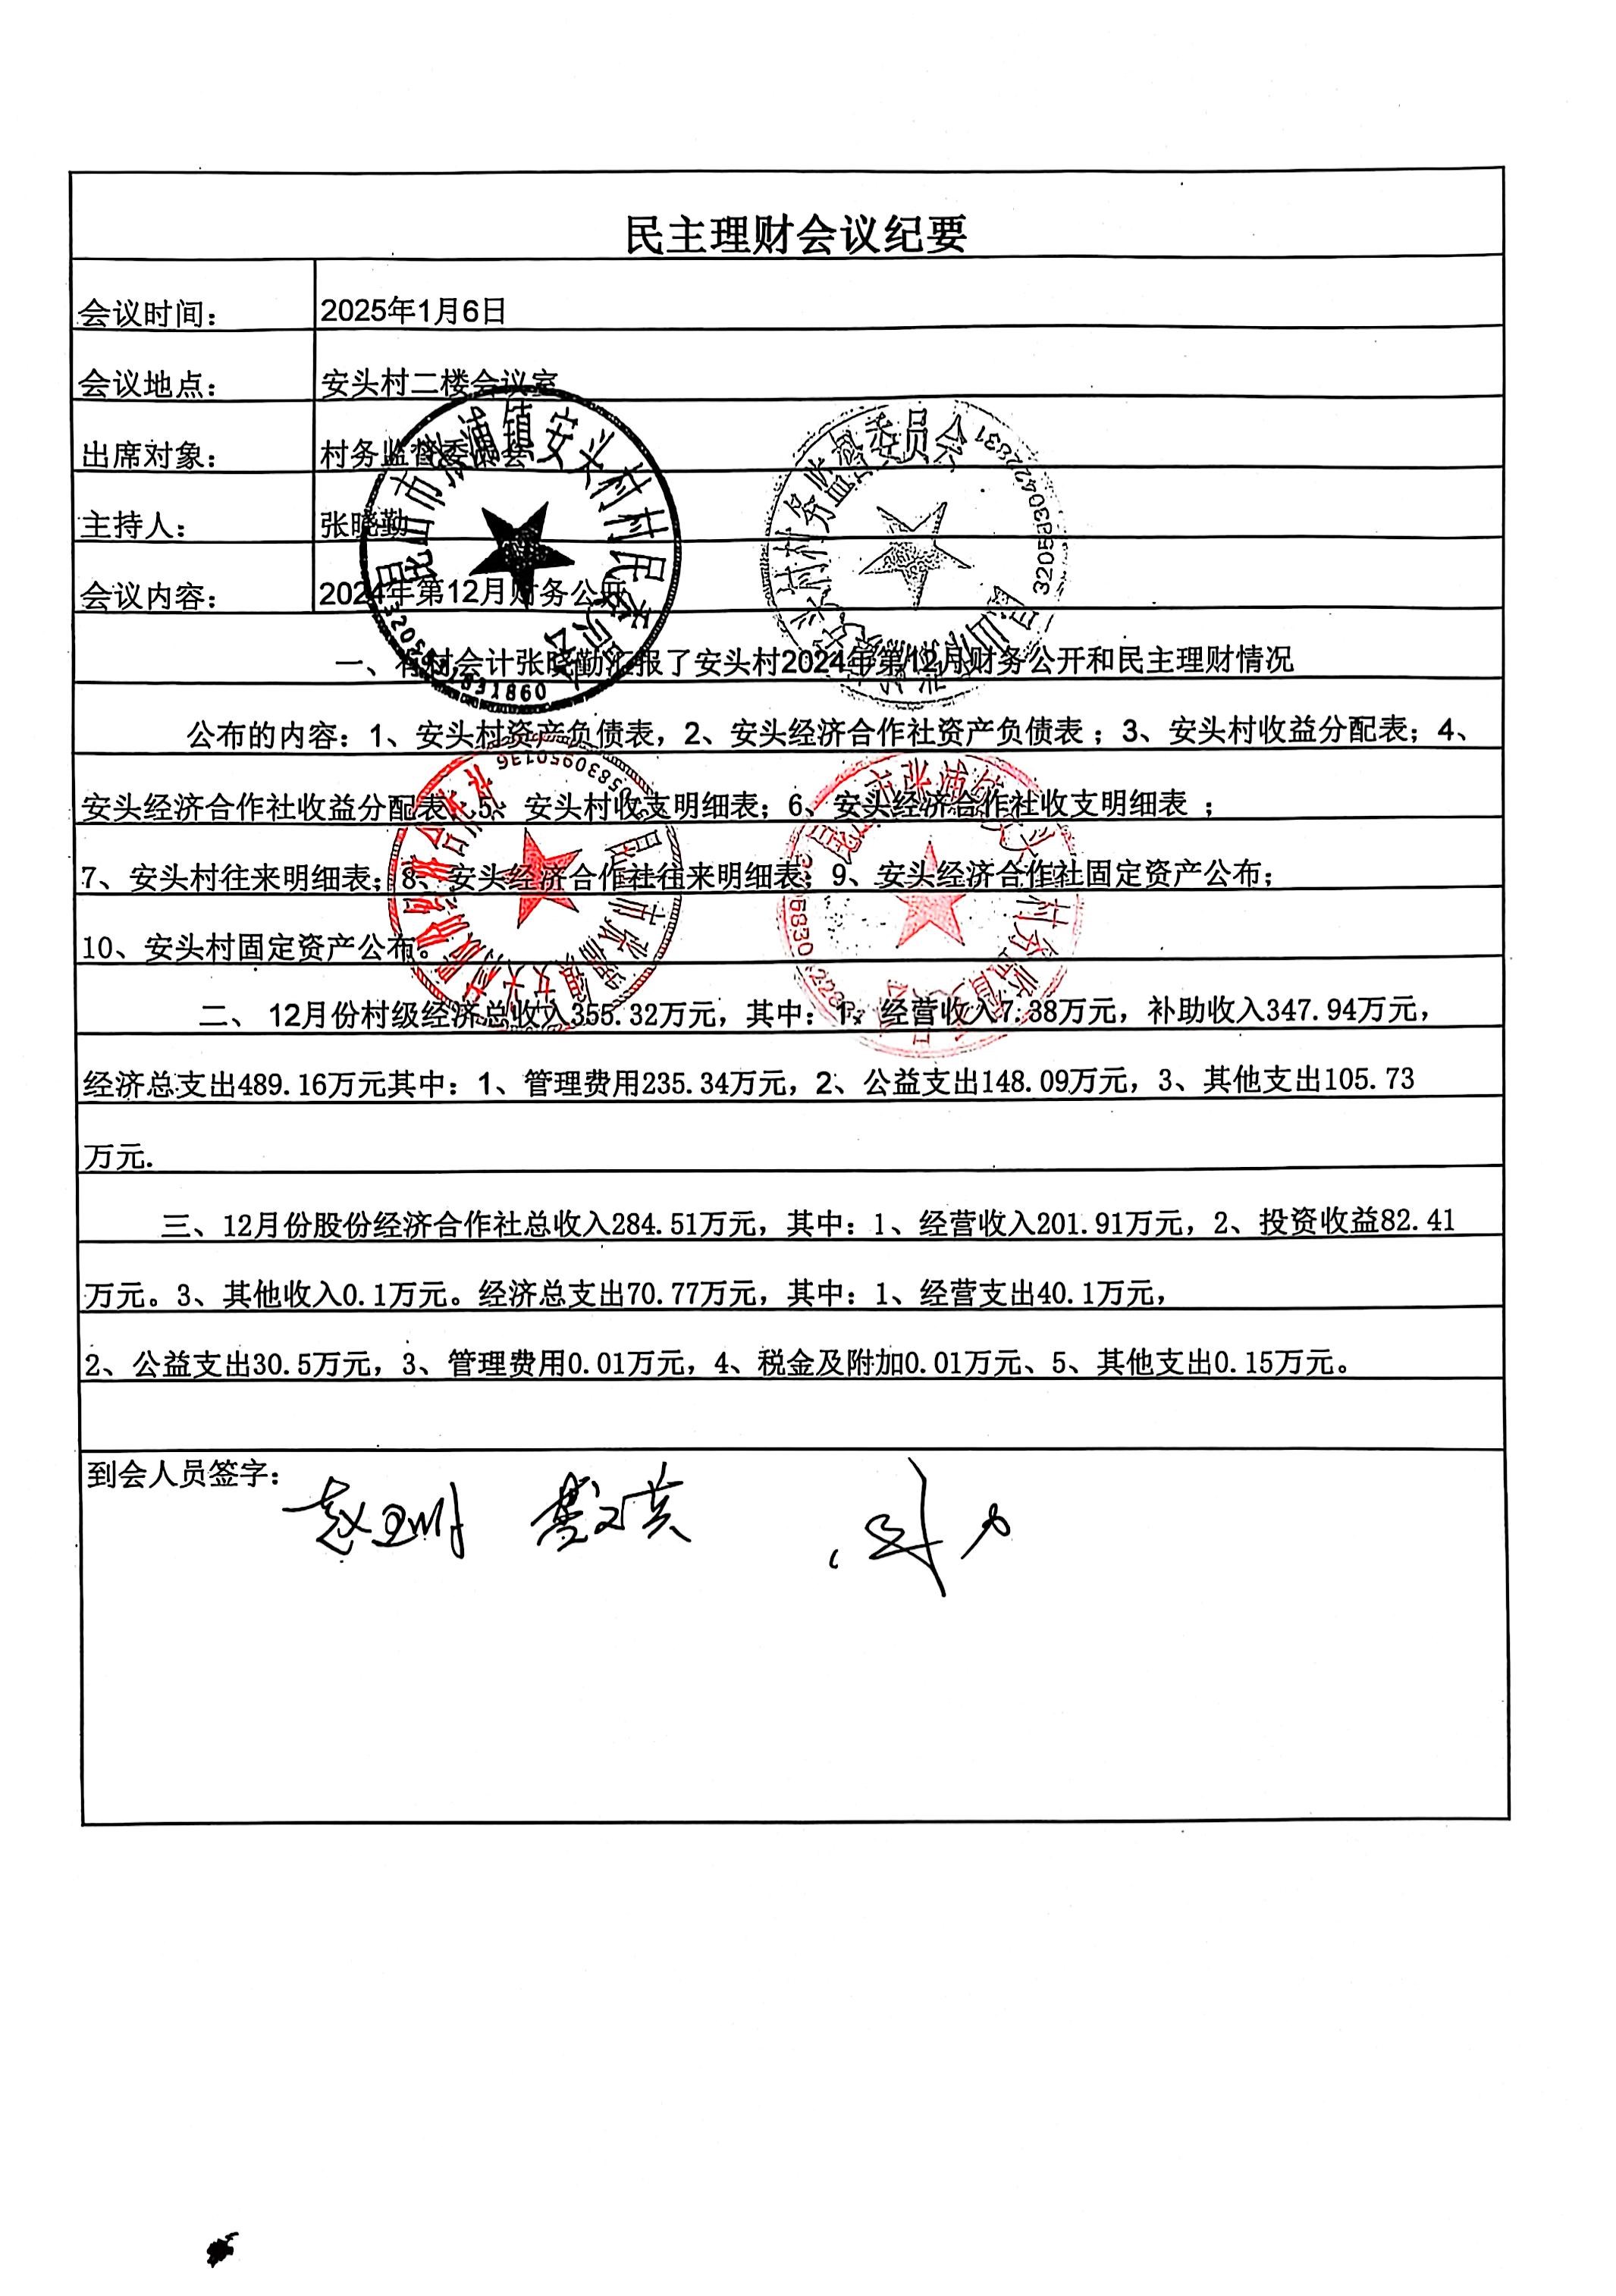 民主理财会议纪要
会议时间： 2025年1月6日
会议地点： 安头村二楼会议室
出席对象： 村务监督委员会
主持人： 张晓勤
会议内容： 2024年第12月财务公开
一、有村会计张晓勤汇报了安头村2024年第12月财务公开和民主理财情况
公布的内容：1、安头村资产负债表，2、安头经济合作社资产负债表；3、安头村收益分配表；4、
安头经济合作社收益分配表；5、安头村收支明细表；6、安头经济合作社收支明细表 ；
7、安头村往来明细表；8、安头经济合作社往来明细表；9、安头经济合作社固定资产公布；
10、安头村固定资产公布。
二、 12月份村级经济总收入355.32万元，其中：1、经营收入7.38万元，补助收入347.94万元，
经济总支出489.16万元其中：1、管理费用235.34万元，2、公益支出148.09万元，3、其他支出105.73
万元.
三、12月份股份经济合作社总收入284.51万元，其中：1、经营收入201.91万元，2、投资收益82.41
万元。3、其他收入0.1万元。经济总支出70.77万元，其中：1、经营支出40.1万元，
2、公益支出30.5万元，3、管理费用0.01万元，4、税金及附加0.01万元、5、其他支出0.15万元。
到会人员签字：
昆山市张浦镇安头村村民委员会
村务监督委员会
3205830422831